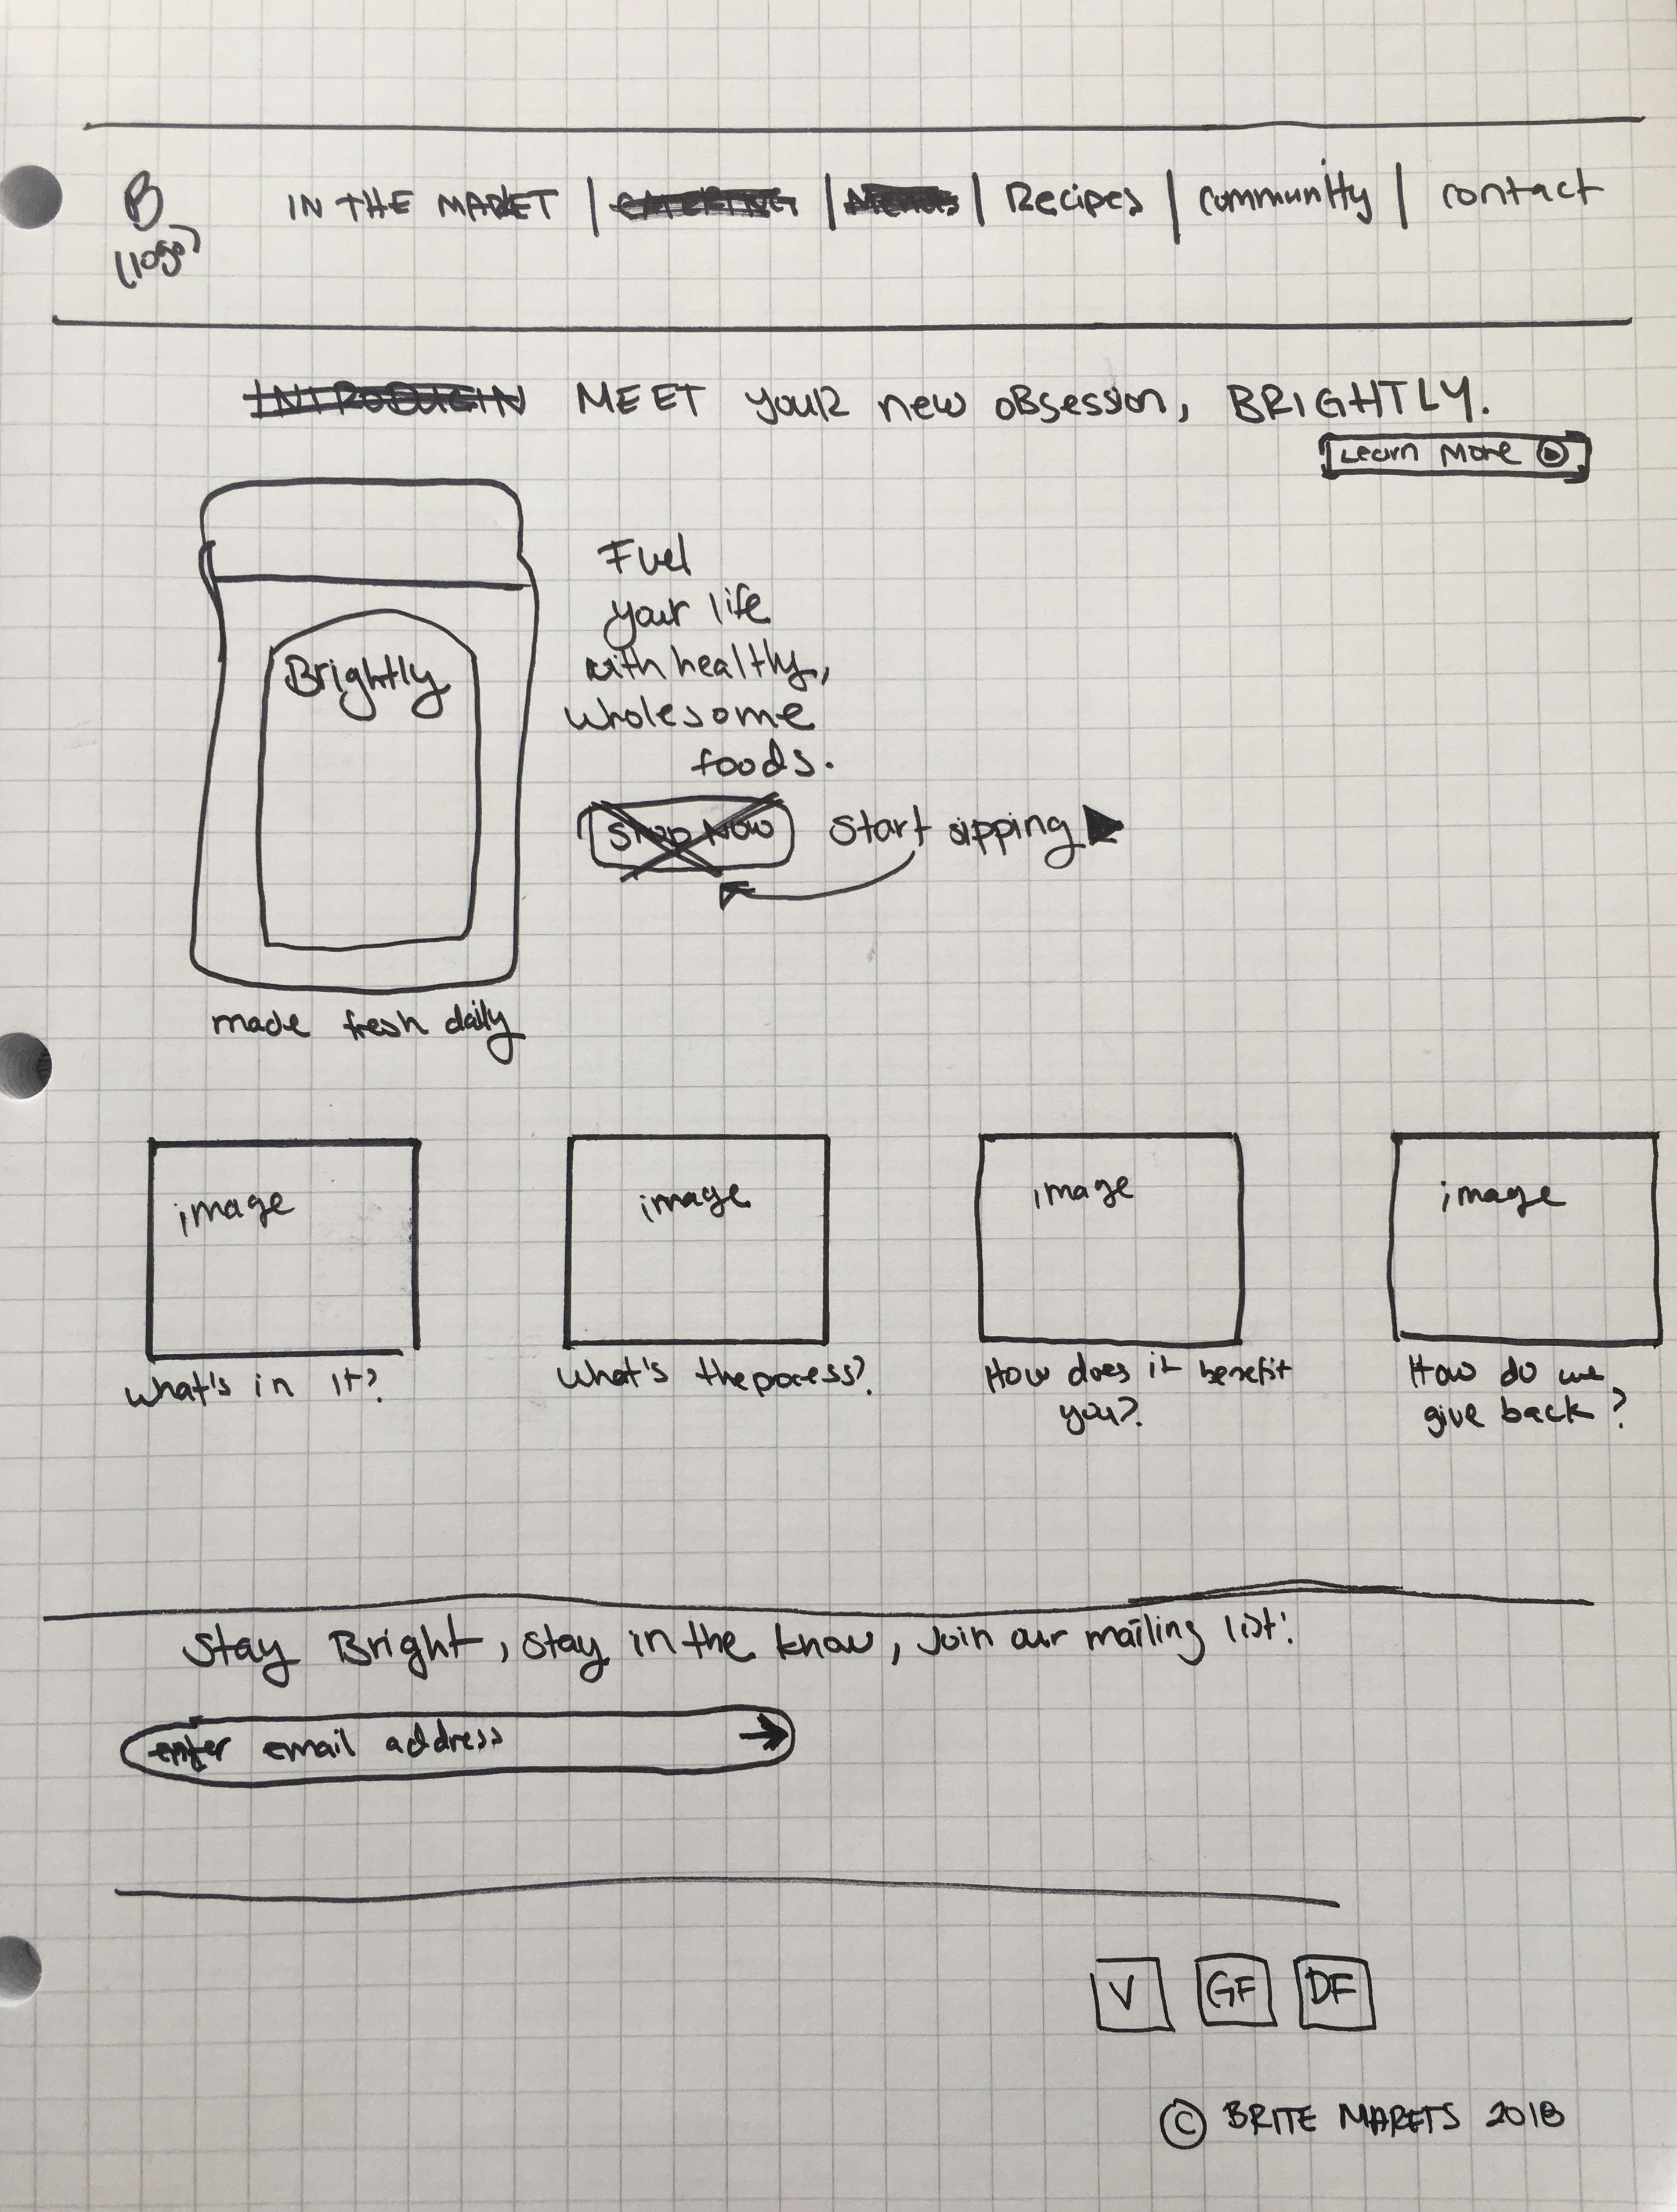 B
(logo)
IN THE MARKET | CATERING | Menus | Recipes | community | contact
INTRODUCIN MEET YOUR new OBsession, BRIGHTLY.
Learn More
Fuel
your life
with healthy,
wholesome
foods.
Brightly
Shop Now Start sipping
made fresh daily
image image image image
what's in it? what's the process? How does it benefit you? How do we give back?
Stay Bright, stay in the know, Join our mailing list!
enter email address →
V GF DF
© BRITE MARETS 2018